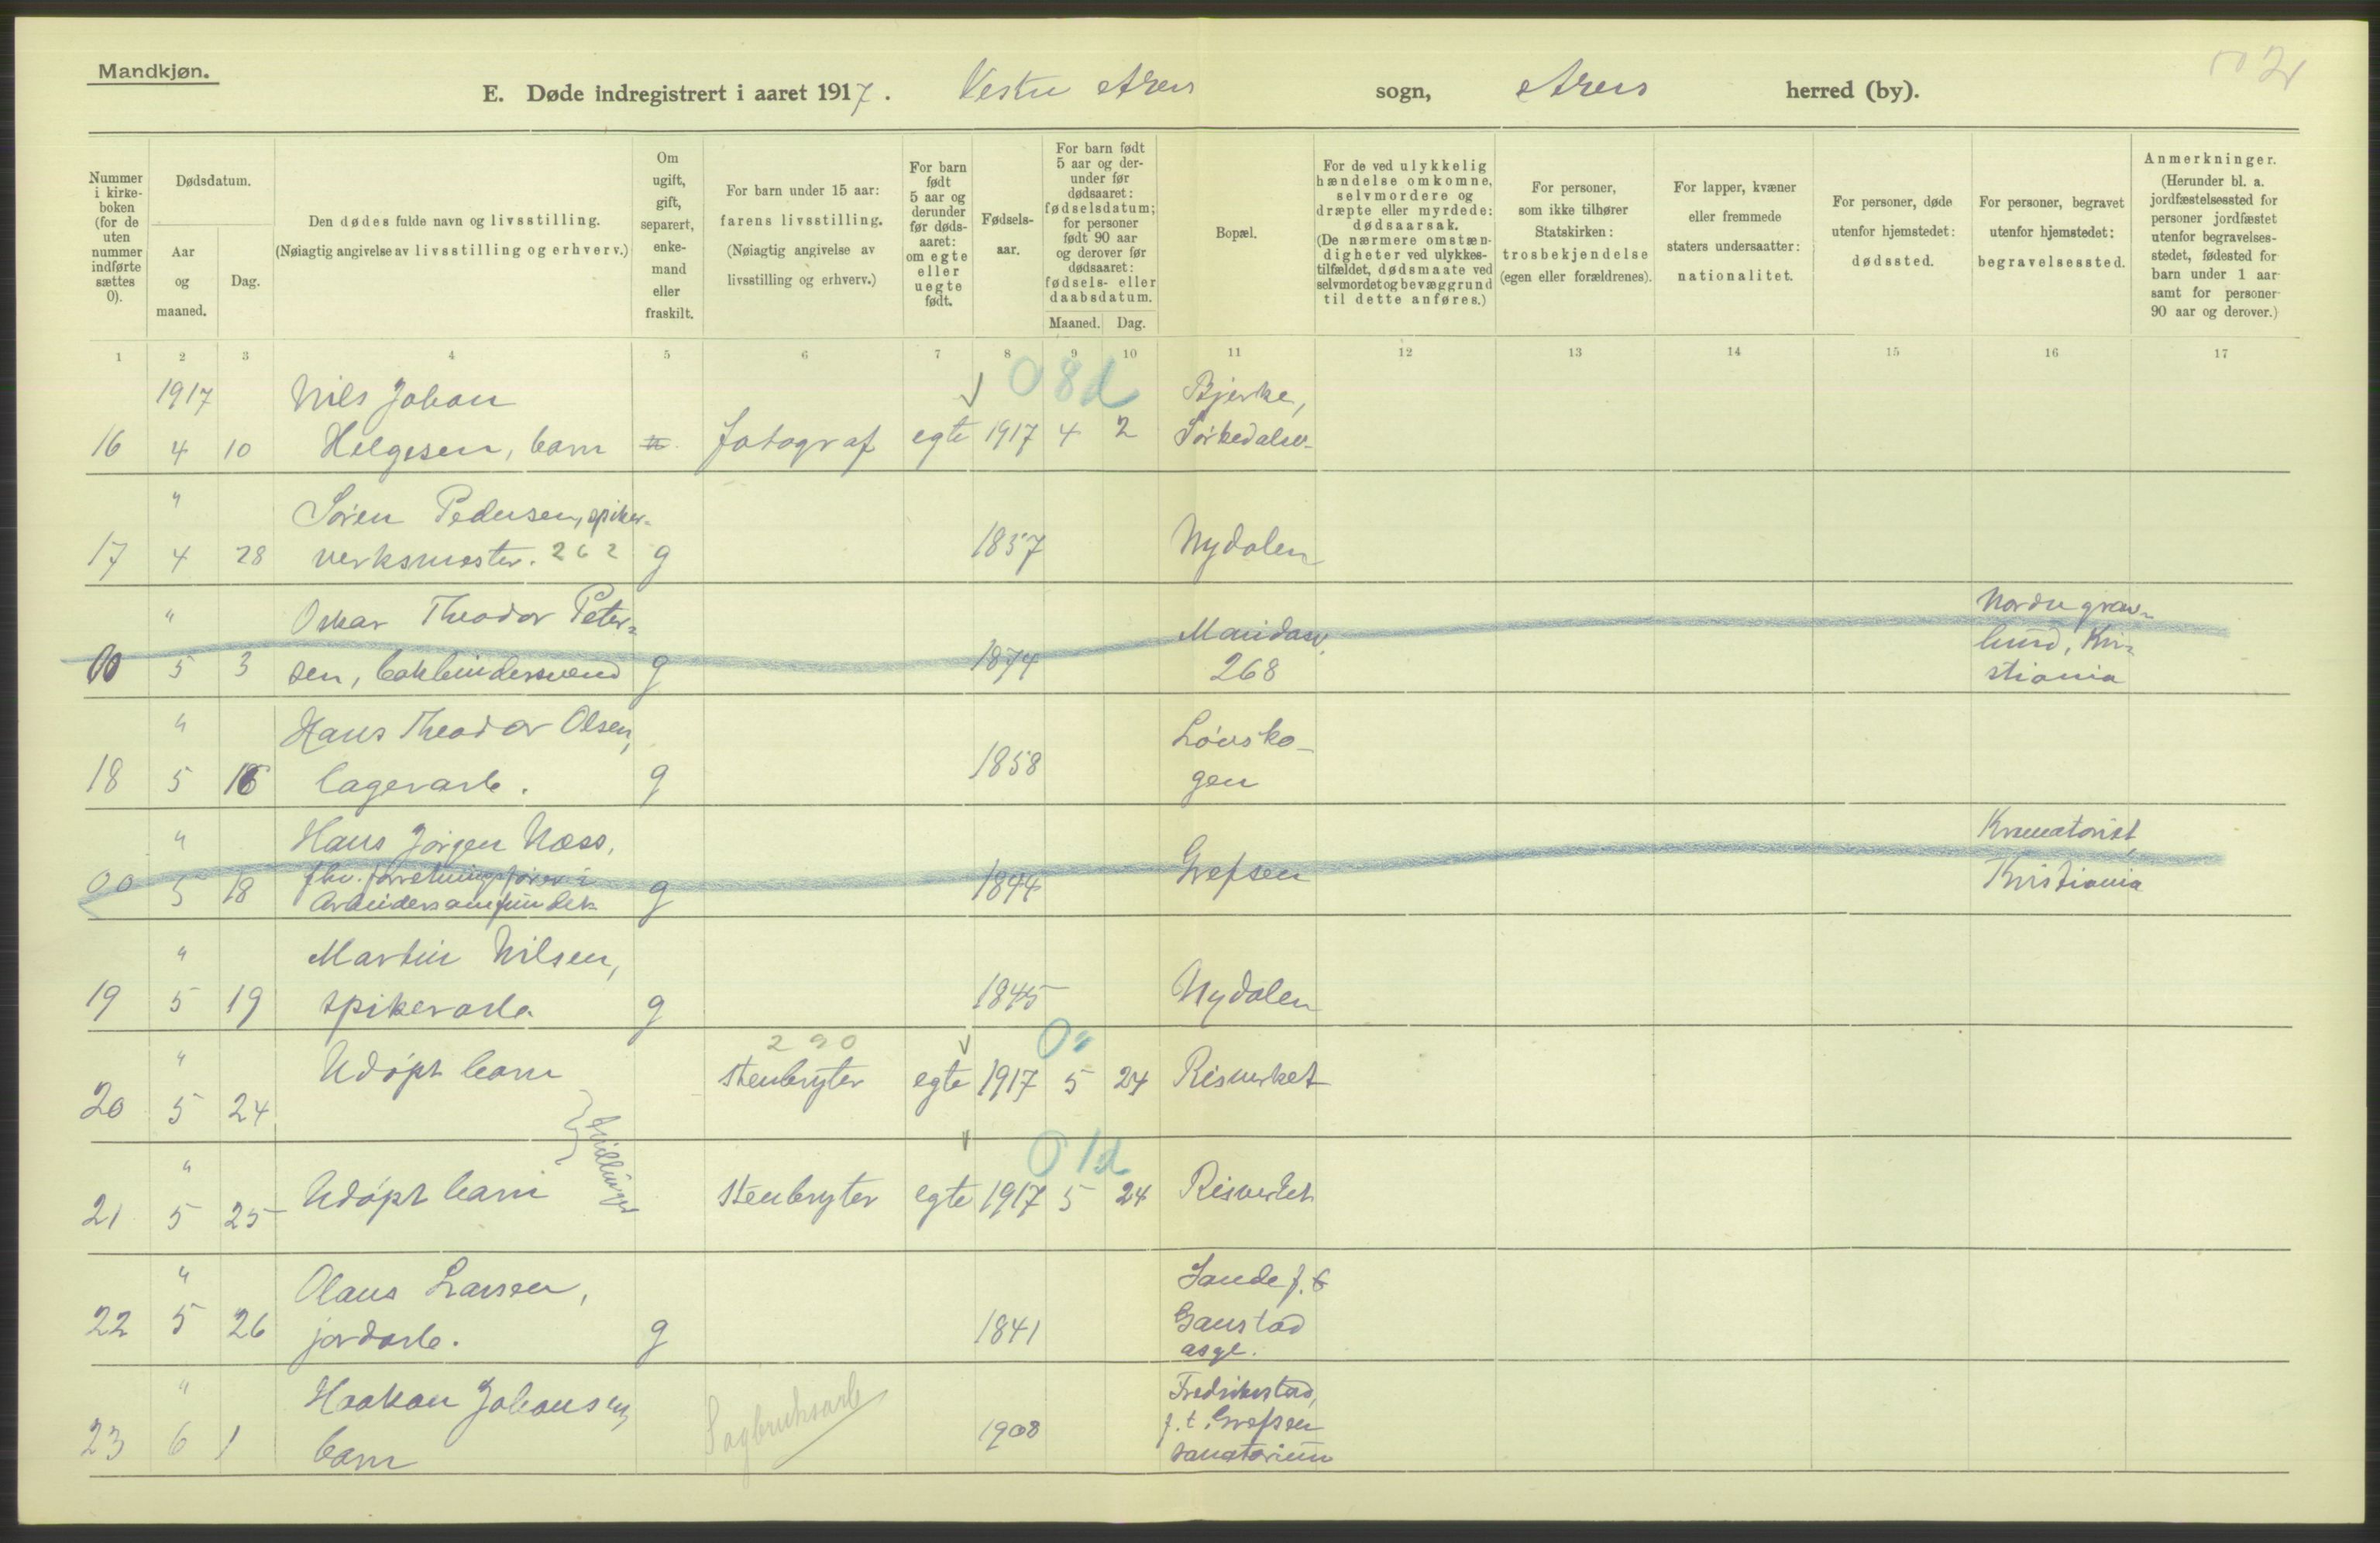 Mandkjøn.
E. Døde indregistrert i aaret 1917. Vestre Akers sogn, Akers herred (by).
Nummer i kirke-boken (for de uten nummer indførte sættes 0).
Dødsdatum.
Aar og maaned.
Dag.
Den dødes fulde navn og livsstilling.
(Nøiagtig angivelse av livsstilling og erhverv.)
Om ugift, gift, separert, enke-mand eller fraskilt.
For barn under 15 aar: farens livsstilling.
(Nøiagtig angivelse av livsstilling og erhverv.)
For barn født 5 aar og derunder før døds-aaret: om egte eller uegte født.
Fødsels-aar.
For barn født 5 aar og der-under før dødsaaret: fødselsdatum; for personer født 90 aar og derover før dødsaaret: fødsels- eller daabsdatum.
Maaned. Dag.
Bopæl.
For de ved ulykkelig hændelse omkomne, selvmordere og dræpte eller myrdede: dødsaarsak.
(De nærmere omstæn-digheter ved ulykkes-tilfældet, dødsmaate ved selvmordet og bevæggrund til dette anføres.)
For personer, som ikke tilhører Statskirken: trosbekjendelse (egen eller forældrenes).
For lapper, kvæner eller fremmede staters undersaatter: nationalitet.
For personer, døde utenfor hjemstedet: dødssted.
For personer, begravet utenfor hjemstedet: begravelsessted.
Anmerkninger.
(Herunder bl. a. jordfæstelsessted for personer jordfæstet utenfor begravelses-stedet, fødested for barn under 1 aar samt for personer 90 aar og derover.)
1 2 3 4 5 6 7 8 9 10 11 12 13 14 15 16 17
1917 Nils Johan 0 8d Bjerke,
16 4 10 Helgesen, barn fotograf egte 1917 4 2 Sørkedalsv.
" Søren Pedersen, spiker-
17 4 28 verksmester. 262 g 1857 Nydalen
" Oskar Theodor Peter- Maridasv. Nordre grav-
00 5 3 sen, bokbindersvend g 1874 268 lund, Kri-
stiania
" Hans Theodor Olsen, Løvsko-
18 5 16 lagerarb. g 1858 gen
" Hans Jørgen Næss, Krematoriet,
00 5 18 fhv. forretningsfører i g 1844 Grefsen Kristiania
Arbeidersamfundet
" Martin Nilsen,
19 5 19 spikerarb. g 1845 Nydalen
" Udøpt barn 290 0"
20 5 24 stenbryter egte 1917 5 24 Risverket
tvillinger
" 0 1d
21 5 25 Udøpt barn stenbryter egte 1917 5 24 Risverket
" Olaus Larsen, Sande f. t.
22 5 26 jordarb. g 1841 Gaustad
asyl.
" Haakon Johansen, Sagbruksarb Fredrikstad,
23 6 1 barn 1908 f. t. Grefsen
sanatorium